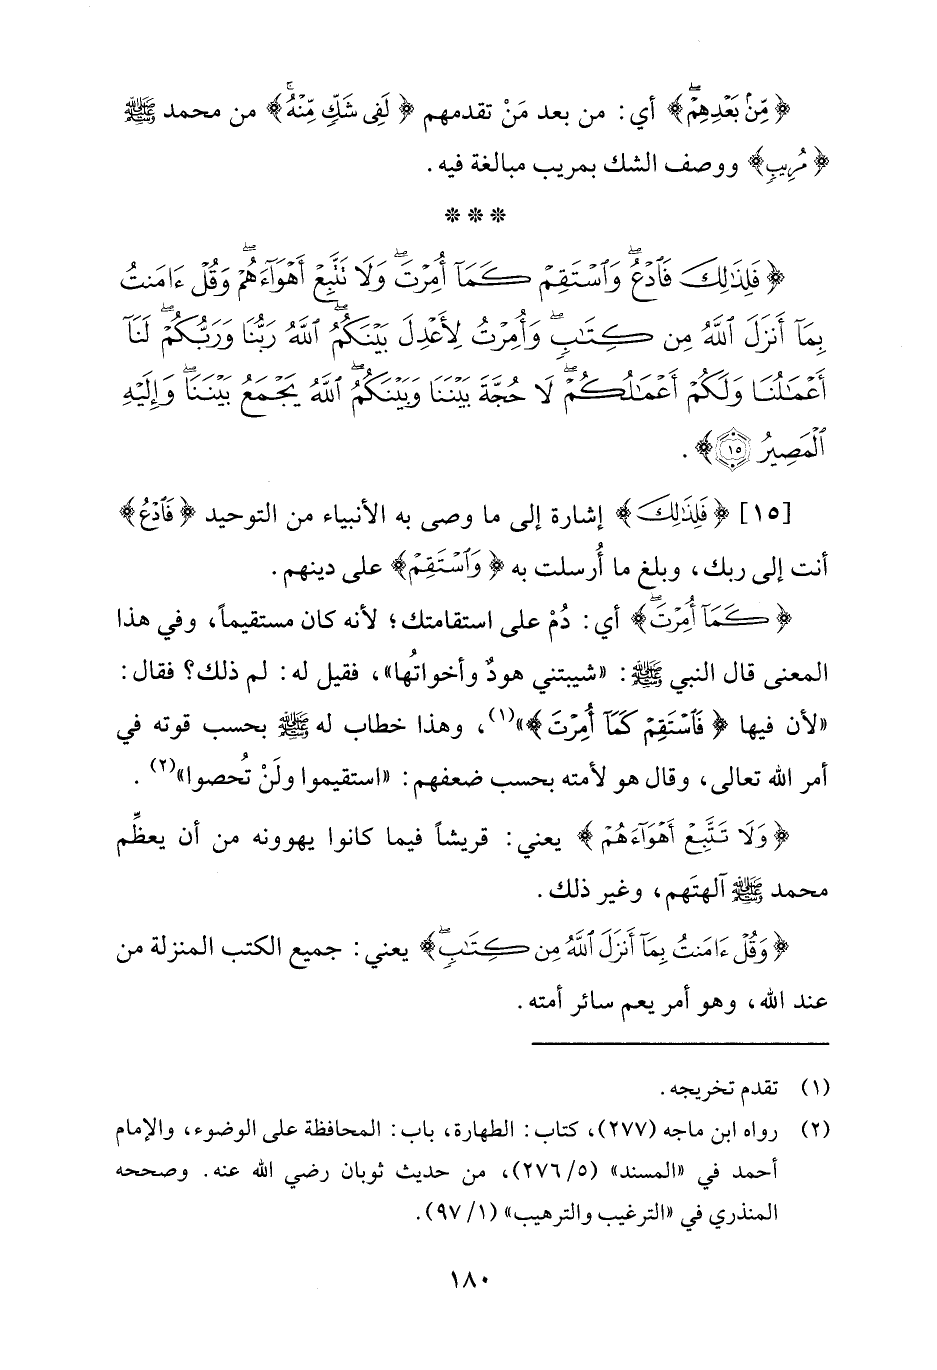 ﴿مِّنۢ بَعْدِهِمْۖ﴾ أي: من بعد مَنْ تقدمهم ﴿لَفِى شَكٍّ مِّنْهُۚ﴾ من محمد ﷺ
﴿مُرِيبٍ﴾ ووصف الشك بمريب مبالغة فيه.
* * *
﴿فَلِذَٰلِكَ فَٱدْعُۖ وَٱسْتَقِمْ كَمَآ أُمِرْتَۖ وَلَا تَتَّبِعْ أَهْوَآءَهُمْۖ وَقُلْ ءَامَنتُ
بِمَآ أَنزَلَ ٱللَّهُ مِن كِتَٰبٍۖ وَأُمِرْتُ لِأَعْدِلَ بَيْنَكُمُۖ ٱللَّهُ رَبُّنَا وَرَبُّكُمْۖ لَنَآ
أَعْمَٰلُنَا وَلَكُمْ أَعْمَٰلُكُمْۖ لَا حُجَّةَ بَيْنَنَا وَبَيْنَكُمُۖ ٱللَّهُ يَجْمَعُ بَيْنَنَاۖ وَإِلَيْهِ
ٱلْمَصِيرُ ١٥﴾.
[١٥] ﴿فَلِذَٰلِكَ﴾ إشارة إلى ما وصى به الأنبياء من التوحيد ﴿فَٱدْعُ﴾
أنت إلى ربك، وبلغ ما أُرسلت به ﴿وَٱسْتَقِمْ﴾ على دينهم.
﴿كَمَآ أُمِرْتَۖ﴾ أي: دُمْ على استقامتك؛ لأنه كان مستقيماً، وفي هذا
المعنى قال النبي ﷺ: «شيبتني هودٌ وأخواتُها»، فقيل له: لم ذلك؟ فقال:
«لأن فيها ﴿فَٱسْتَقِمْ كَمَآ أُمِرْتَ﴾»(١)، وهذا خطاب له ﷺ بحسب قوته في
أمر الله تعالى، وقال هو لأمته بحسب ضعفهم: «استقيموا ولَنْ تُحصوا»(٢).
﴿وَلَا تَتَّبِعْ أَهْوَآءَهُمْ﴾ يعني: قريشاً فيما كانوا يهوونه من أن يعظِّم
محمد ﷺ آلهتَهم، وغير ذلك.
﴿وَقُلْ ءَامَنتُ بِمَآ أَنزَلَ ٱللَّهُ مِن كِتَٰبٍۖ﴾ يعني: جميع الكتب المنزلة من
عند الله، وهو أمر يعم سائر أمته.
(١) تقدم تخريجه.
(٢) رواه ابن ماجه (٢٧٧)، كتاب: الطهارة، باب: المحافظة على الوضوء، والإمام
أحمد في «المسند» (٥/ ٢٧٦)، من حديث ثوبان رضي الله عنه. وصححه
المنذري في «الترغيب والترهيب» (١/ ٩٧).
١٨٠